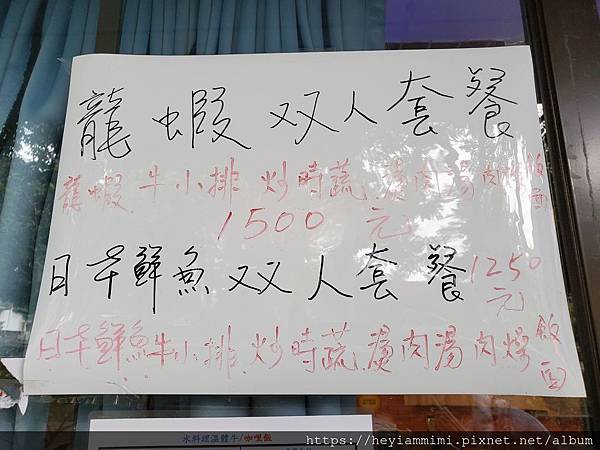 龍蝦双人套餐
龍蝦 牛小排 炒時蔬 湯肉湯 肉燥飯
1500元
日本鮮魚双人套餐 1250元
日本鮮魚牛小排 炒時蔬 湯肉湯 肉燥飯
水料理溫體牛/咖哩飯
https://heyiammimi.pixnet.net/album